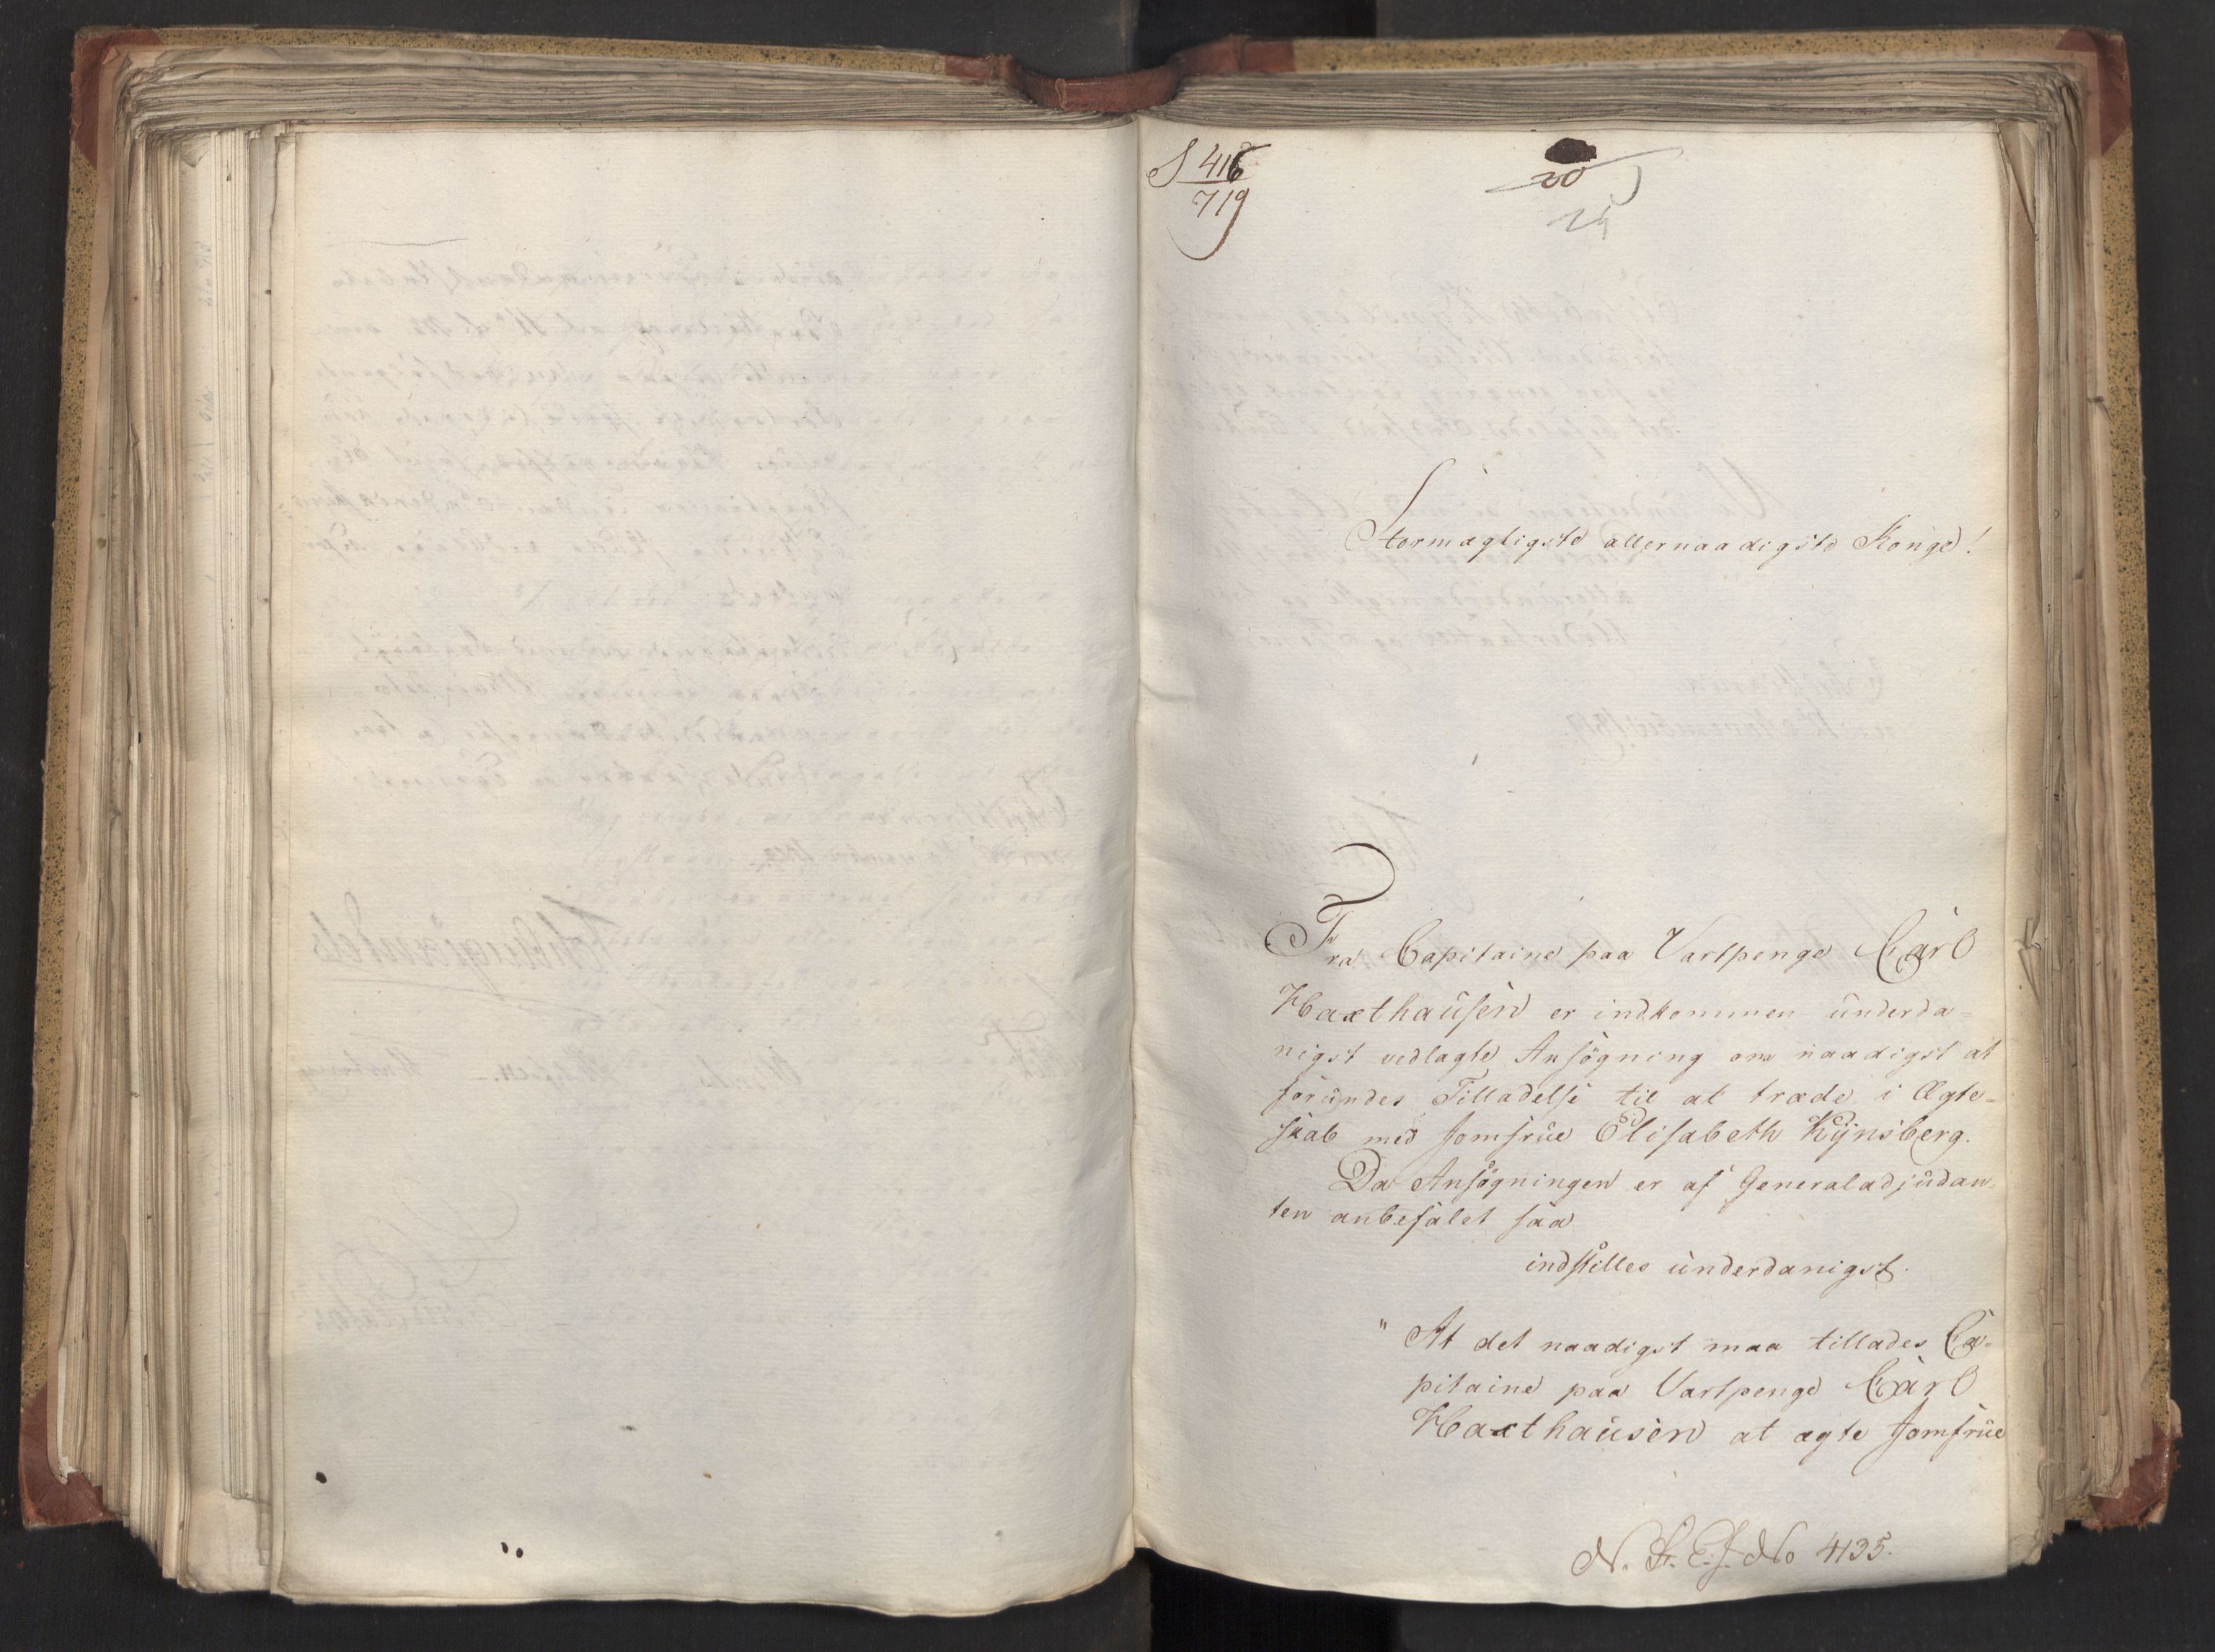 S 416
719
20
25
Stormægtigste allernaadigste Konge!
Fra Capitaine paa Vartpenge Carl
Haxthausen er indkommen underda=
nigst vedlagte Ansøgning om naadigst at
forundes Tilladelse til at træde i Ægte=
skab med Jomfrue Elisabeth Kÿnsberg.
Da Ansøgningen er af Generaladjudan=
ten anbefalet saa
indstilles underdanigst.
" At det naadigst maa tillades Ca=
pitaine paa Vartpenge Carl
Haxthausen at ægte Jomfrue
N. St. E. J. No 4135.